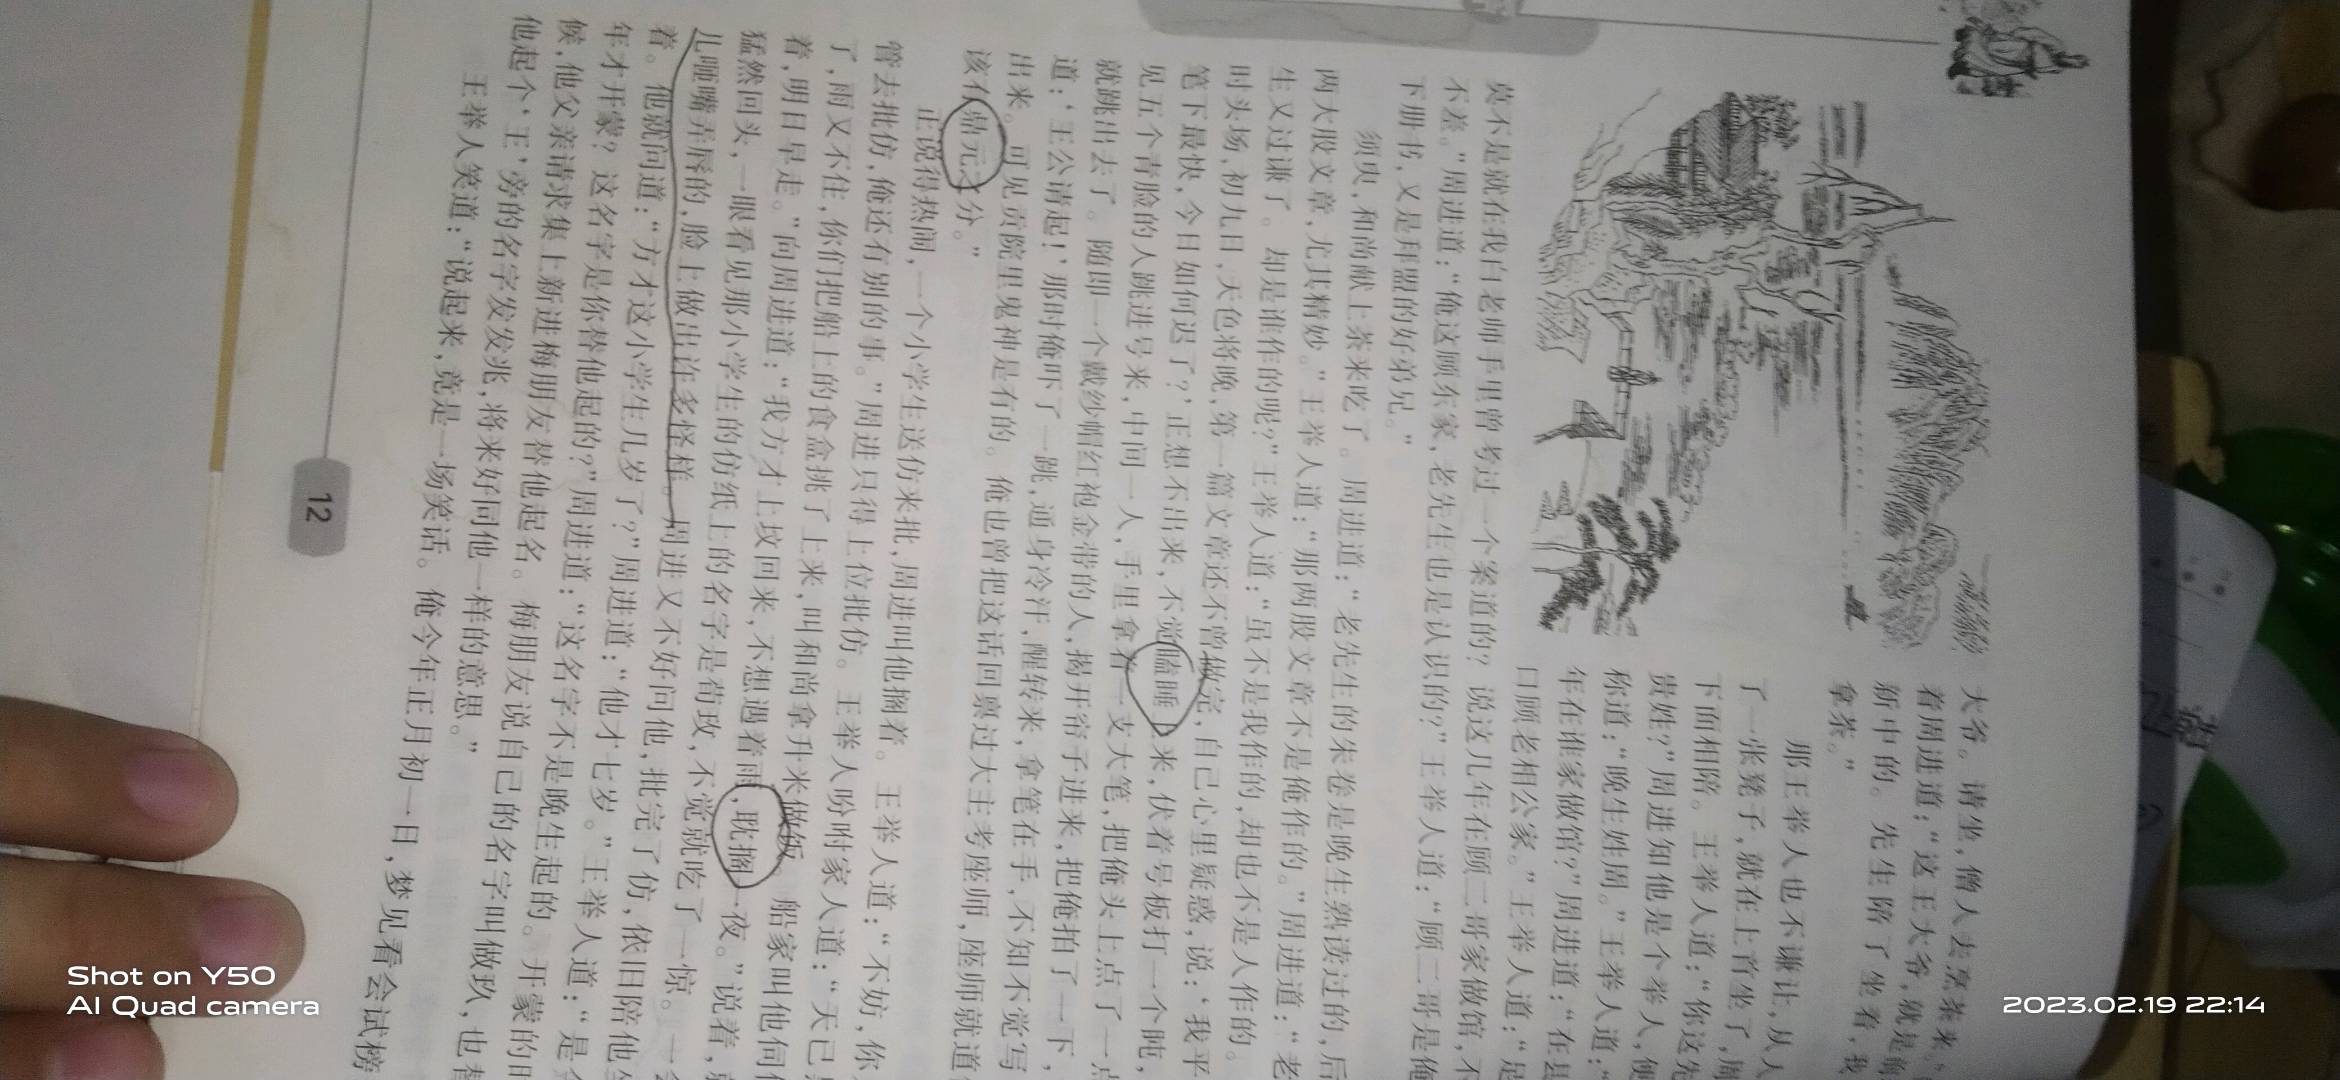 大爷。请坐，僧人去烹茶来。”
着周进道：“这王大爷，就是前
新中的。先生陪了坐着，我
拿茶。”
那王举人也不谦让，从人
了一张凳子，就在上首坐了，周
下面相陪。王举人道：“你这先
贵姓？”周进知他是个举人，便
称道：“晚生姓周。”王举人道：“
年在谁家做馆？”周进道：“在县
口顾老相公家。”王举人道：“足
莫不是就在我白老师手里曾考过一个案首的？说这几年在顾二哥家做馆，不
不差。”周进道：“俺这顾东家，老先生也是认识的？”王举人道：“顾二哥是俺
下册书，又是拜盟的好弟兄。”
须臾，和尚献上茶来吃了。周进道：“老先生的朱卷是晚生熟读过的，后
两大股文章，尤其精妙。”王举人道：“那两股文章不是俺作的。”周进道：“老
生又过谦了。却是谁作的呢？”王举人道：“虽不是我作的，却也不是人作的。
时头场，初九日，天色将晚，第一篇文章还不曾做完，自己心里疑惑，说：‘我平
笔下最快，今日如何迟了？’正想不出来，不觉瞌睡上来，伏着号板打一个盹，
见五个青脸的人跳进号来，中间一人，手里拿着一支大笔，把俺头上点了一点
就跳出去了。随即一个戴纱帽红袍金带的人，揭开帘子进来，把俺拍了一下，
道：‘王公请起！’那时俺吓了一跳，通身冷汗，醒转来，拿笔在手，不知不觉写
出来。可见贡院里鬼神是有的。俺也曾把这话回禀过大主考座师，座师就道
该有鼎元之分。”
正说得热闹，一个小学生送仿来批，周进叫他搁着。王举人道：“不妨，你
管去批仿，俺还有别的事。”周进只得上位批仿。王举人吩咐家人道：“天已
了，雨又不住，你们把船上的食盒挑了上来，叫和尚拿升米做饭。船家叫他伺
着，明日早走。”向周进道：“我方才上坟回来，不想遇着雨，耽搁一夜。”说着，
猛然回头，一眼看见那小学生的仿纸上的名字是荀玫，不觉就吃了一惊。一会
儿咂嘴弄唇的，脸上做出许多怪样。周进又不好问他，批完了仿，依旧陪他坐
着。他就问道：“方才这小学生几岁了？”周进道：“他才七岁。”王举人道：“是
年才开蒙？这名字是你替他起的？”周进道：“这名字不是晚生起的。开蒙的时
候，他父亲请求集上新进梅朋友替他起名。梅朋友说自己的名字叫做玖，也替
他起个‘王’旁的名字发发兆，将来好同他一样的意思。”
王举人笑道：“说起来，竟是一场笑话。俺今年正月初一日，梦见看会试榜
12
Shot on Y50
AI Quad camera
2023.02.19 22:14